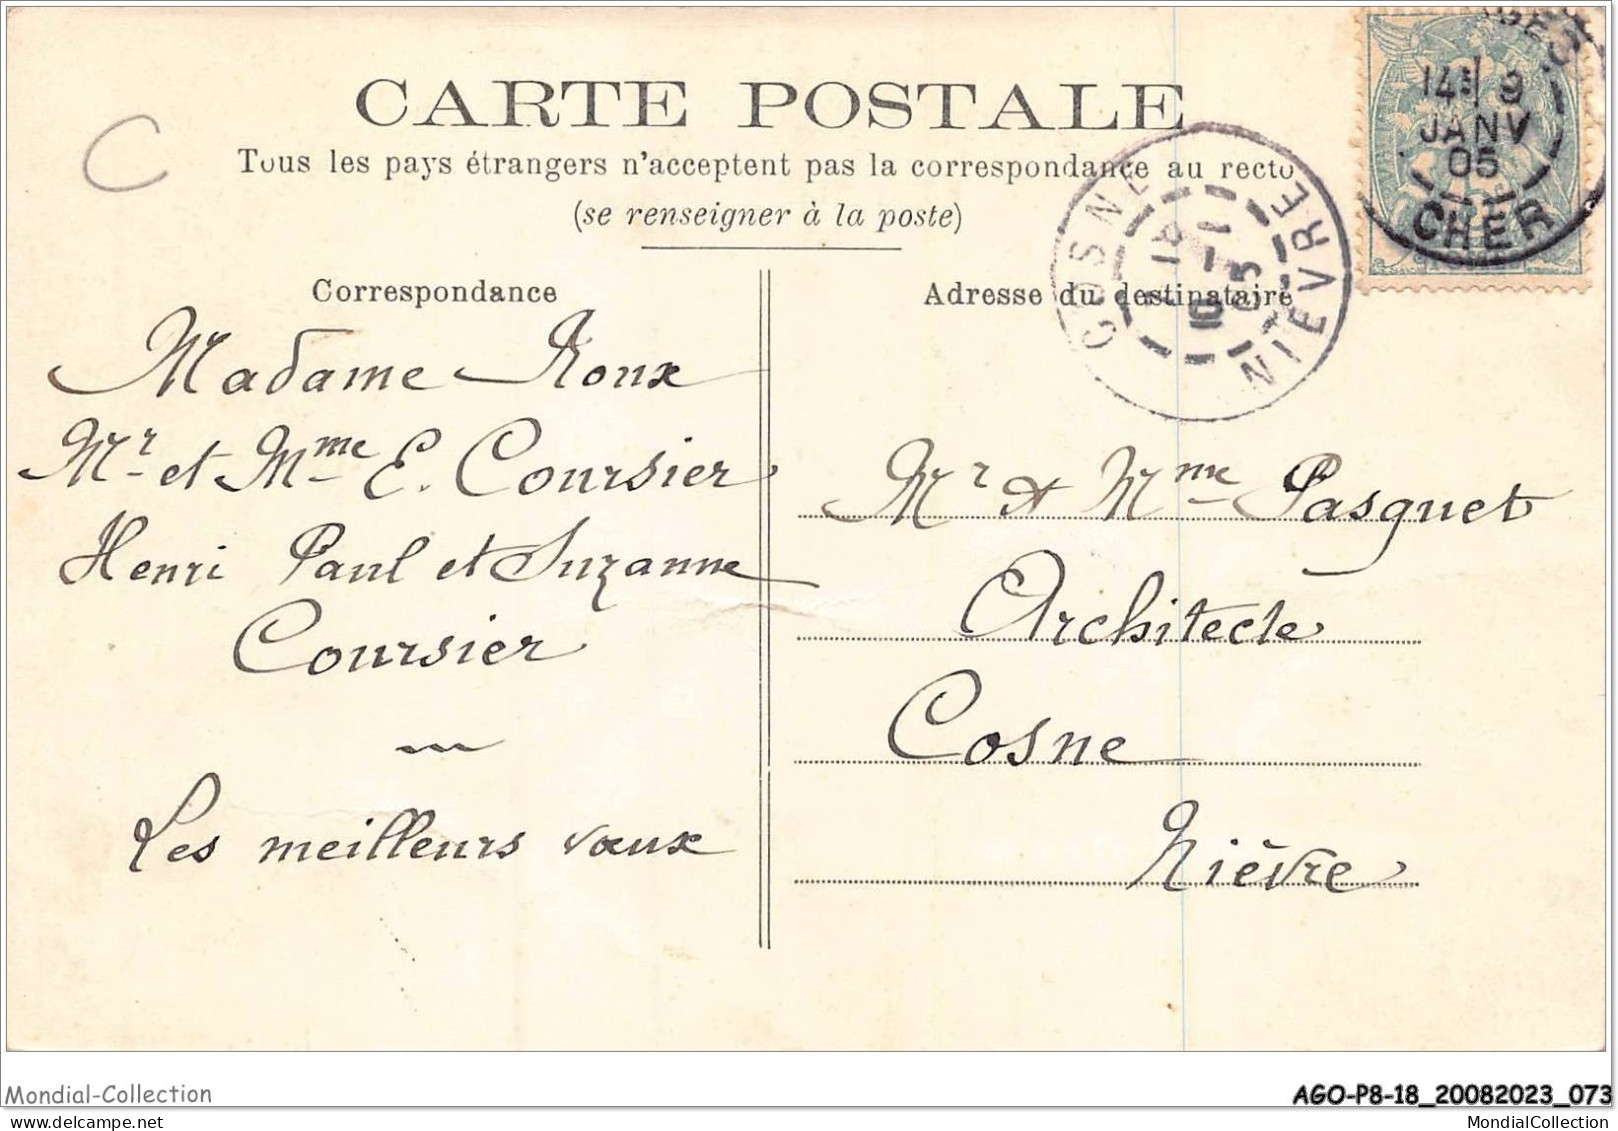 CARTE POSTALE
Tous les pays étrangers n'acceptent pas la correspondance au recto
(se renseigner à la poste)
Correspondance
Madame Roux
Mr et Mme E. Coursier
Henri Paul et Suzanne
Coursier
Les meilleurs vœux
Adresse du destinataire
Mr & Mme Pasquet
Architecte
Cosne
Nièvre
COSNE
10 - 1
05
NIEVRE
9
JANV
05
CHER
C
Mondial-Collection
AGO-P8-18_20082023_073
MondialCollection